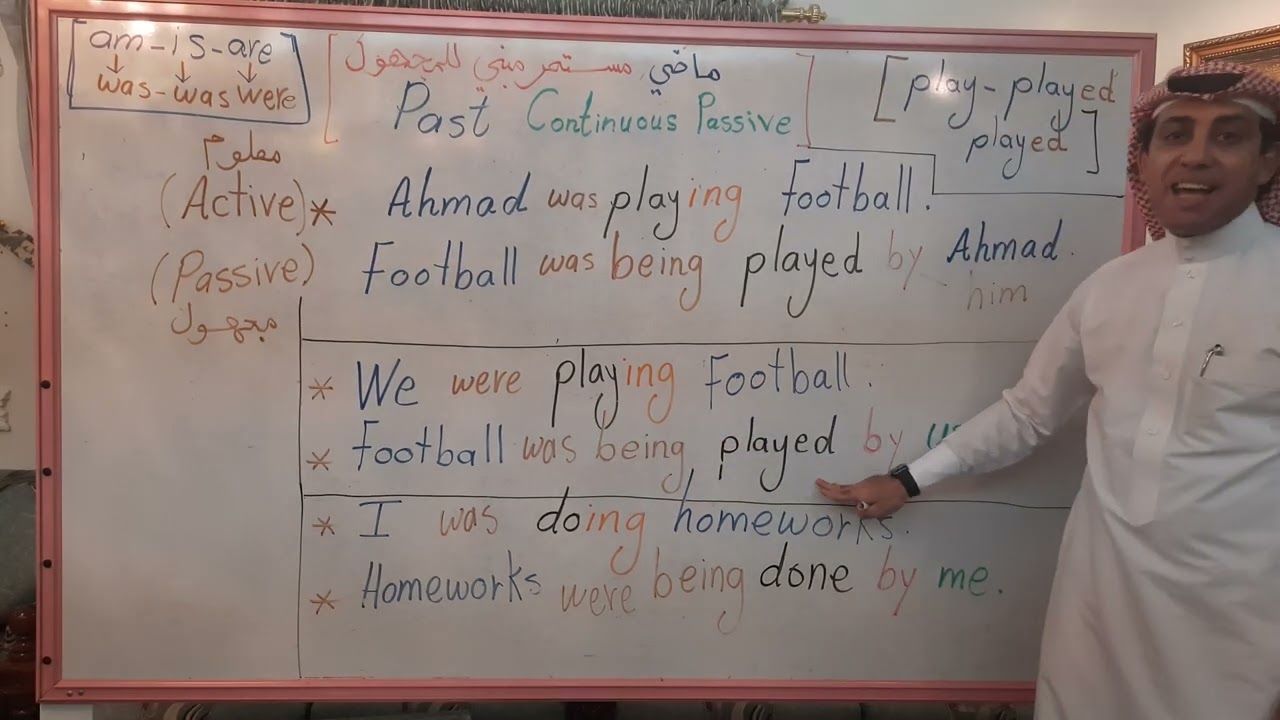 am-is-are
was-was were
[ماضي مستمر مبني للمجهول
Past Continuous Passive]
[play-played
played]
معلوم
(Active)* Ahmad was playing football.
(Passive) Football was being played by Ahmad.
him
مجهول
* We were playing Football.
* Football was being played by us
* I was doing homeworks.
* Homeworks were being done by me.